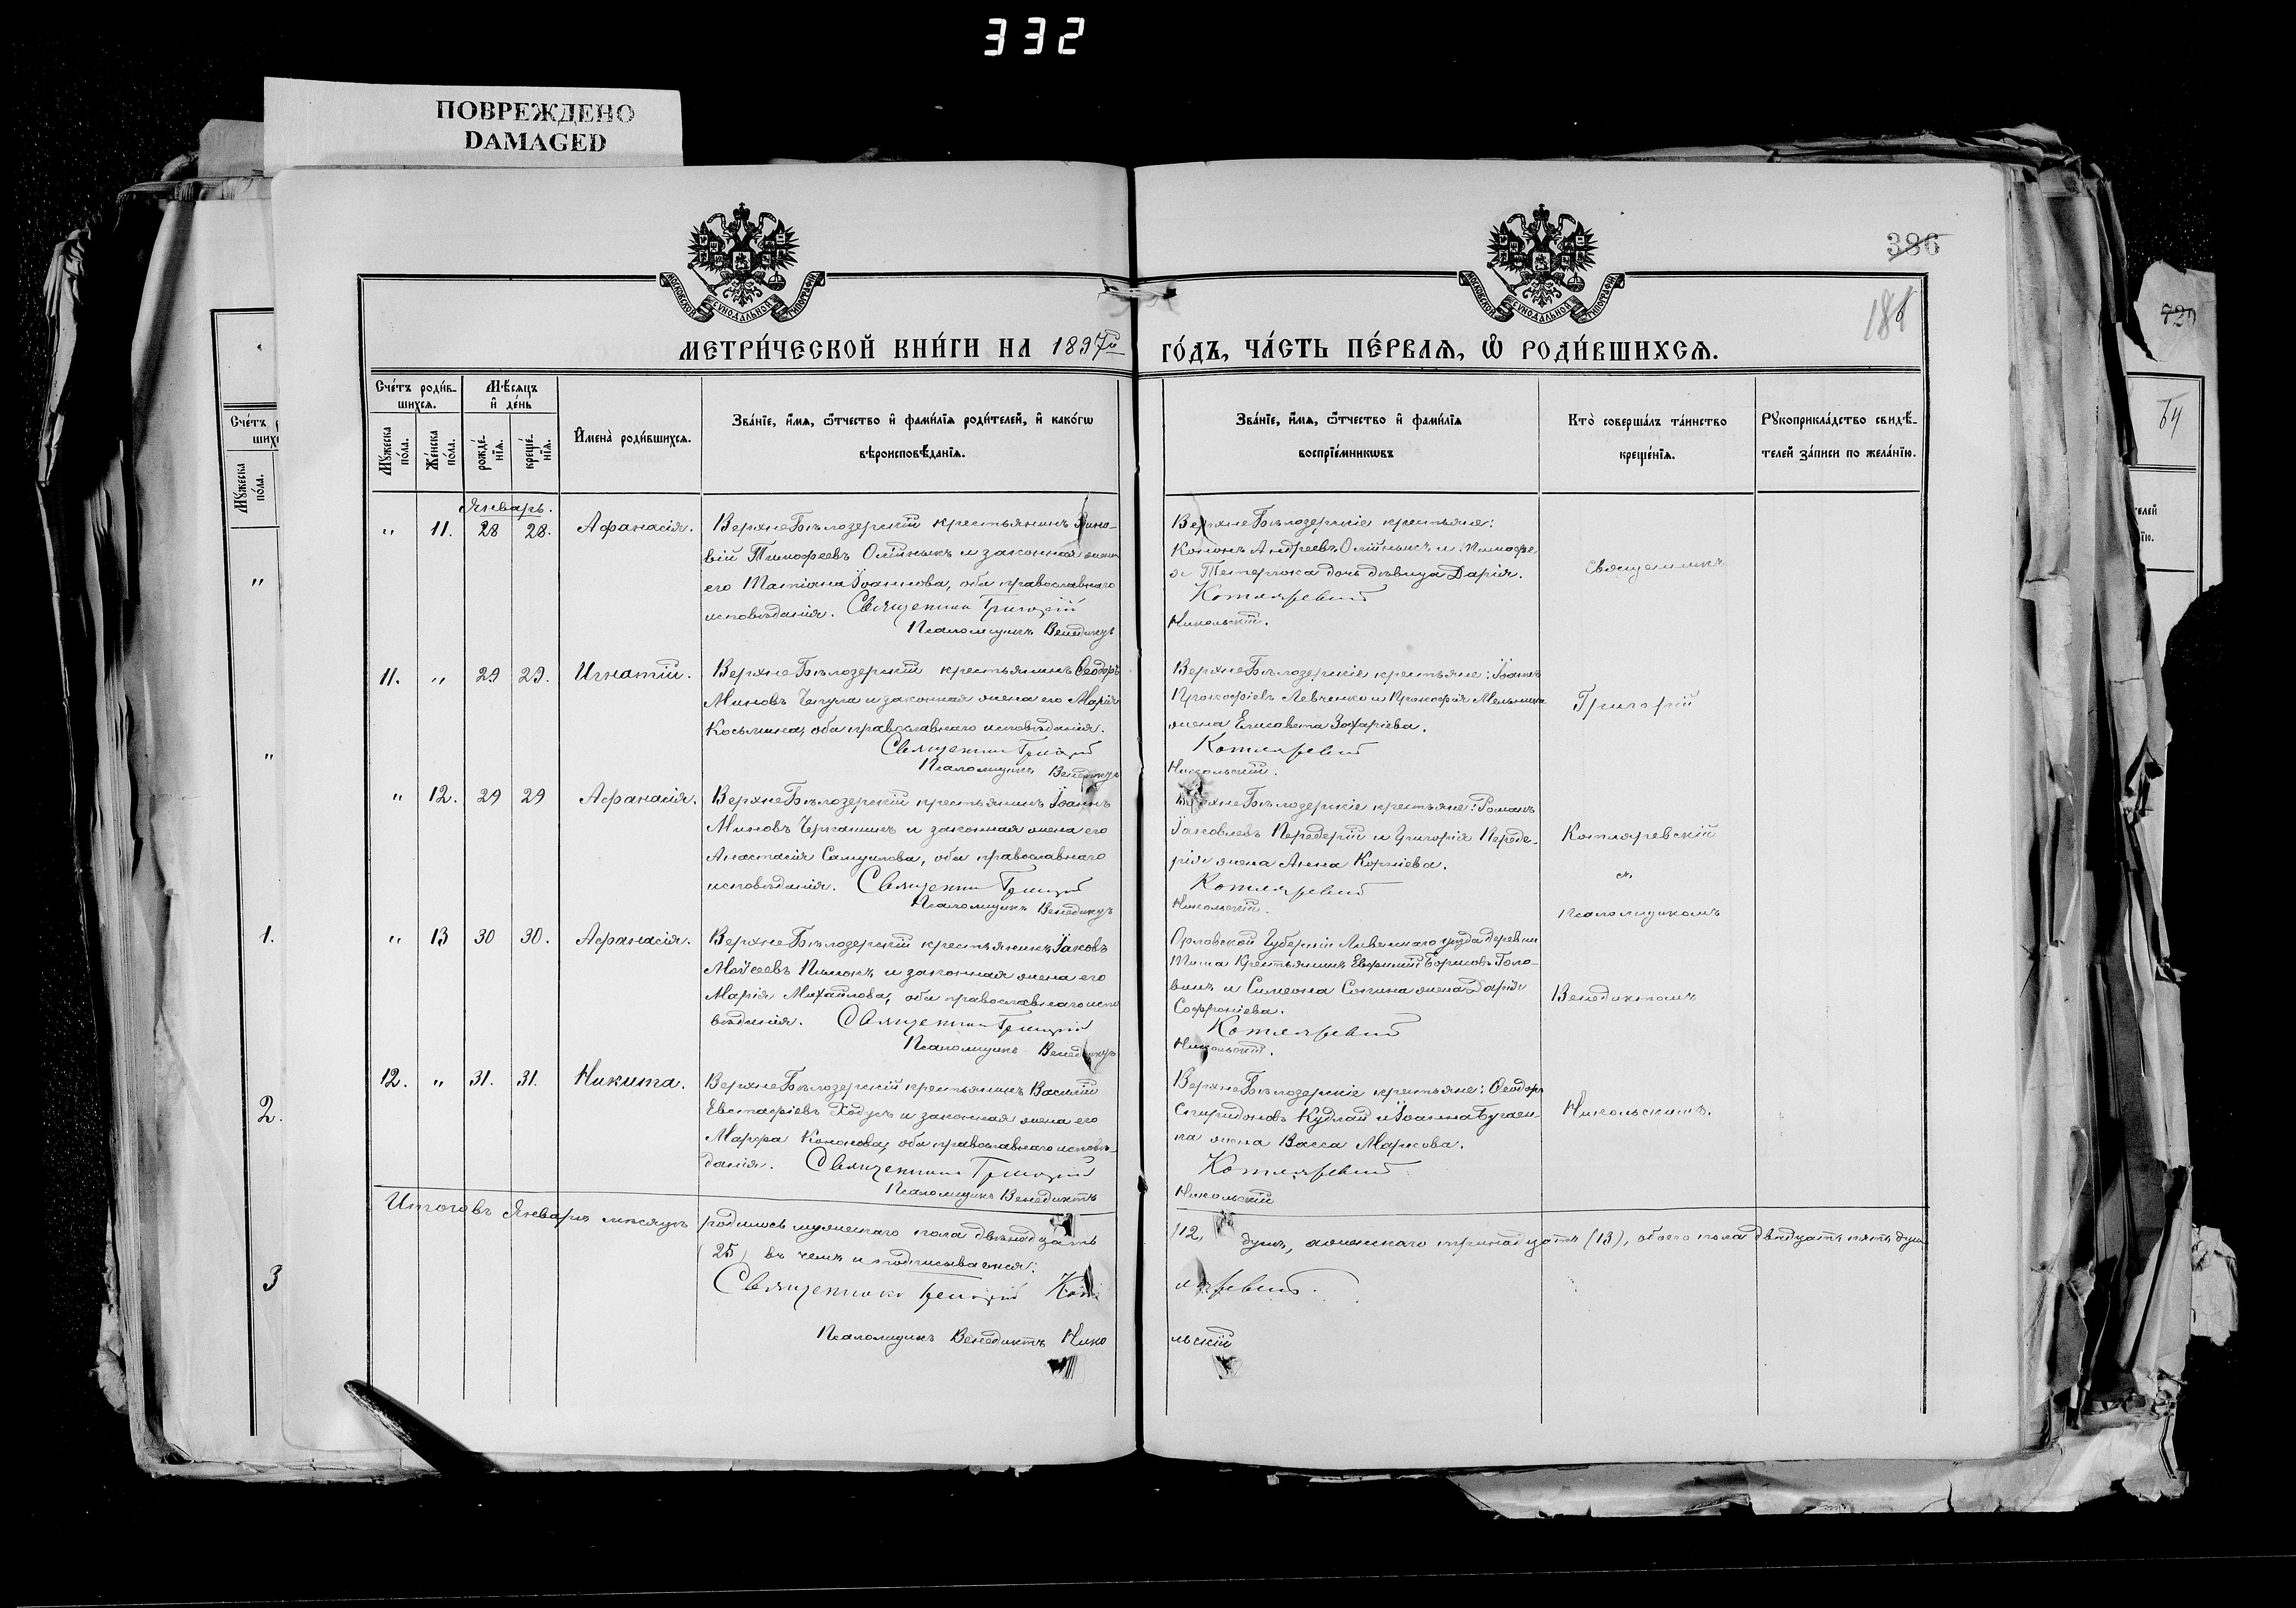 332
ПОВРЕЖДЕНО
DAMAGED
386
188
МОСКОВСКОЙ СѴНОДАЛЬНОЙ ТИПОГРАФІИ
МОСКОВСКОЙ СѴНОДАЛЬНОЙ ТИПОГРАФІИ
МЕТРИ́ЧЕСКОЙ КНИ́ГИ НА 1897й ГО́ДЪ, ЧА́СТЬ ПЕ́РВАЯ, Ѿ РОДИ́ВШИХСЯ.
Сче́тъ роди́в-
шихся.
Мѣ́сяцъ
и де́нь
Мꙋ́жеска
по́ла.
Же́нска
по́ла.
рожде́-
нїѧ.
креще́-
нїѧ.
Имена̀ роди́вшихся.
Зва́нїе, и́мя, ѻ́тчество и фами́лїя роди́телей, и како́гѡ
вѣроисповѣ́данїя.
Зва́нїе, и́мя, ѻ́тчество и фами́лїя
воспрїе́мникѡвъ
Кто̀ соверша́лъ та́инство
креще́нїя.
Рꙋкоприкла́дство свидѣ́-
телей за́писи по жела́нїю.
Январь.
" 11. 28 28. Афанасія.
ВерхнеБѣлозерскій крестьянинъ Зино-
вій Тимофеевъ Олійныкъ и законная жена
его Татіана Іоаннова, оба православнаго
исповѣданія. Священникъ Григорій
Псаломщикъ Венедиктъ
ВерхнеБѣлозерскіе крестьяне:
Кононъ Андреевъ Олійныкъ и Тимофе
я дочь дѣвица Дарія.
Котляревскій
Никольскій.
Священникъ
11. " 29 29. Игнатій.
ВерхнеБѣлозерскій крестьянинъ Ѳеодоръ
Миновъ и законная жена его Марія
Косьмина, оба православнаго исповѣданія.
Священникъ Григорій
Псаломщикъ Венедиктъ
ВерхнеБѣлозерскіе крестьяне: Іоаннъ
Прокофіевъ Левченко и Прокофія Мельника
жена Елисавета Захаріева.
Котляревскій
Никольскій.
Григорій
" 12. 29 29 Афанасія.
ВерхнеБѣлозерскій крестьянинъ Іоаннъ
Миновъ и законная жена его
Анастасія Самуилова, оба православнаго
исповѣданія. Священникъ Григорій
Псаломщикъ Венедиктъ
ВерхнеБѣлозерскіе крестьяне: Романъ
Іаковлевъ Передерій и Григорія Переде-
рія жена Анна Корніева.
Котляревскій
Никольскій.
Котляревскій
съ
Псаломщикомъ
" 13 30 30. Афанасія.
ВерхнеБѣлозерскій крестьянинъ Іаковъ
Моѵсеевъ и законная жена его
Марія Михайлова, оба православнаго испо
вѣданія. Священникъ Григорій
Псаломщикъ Венедиктъ
Орловской Губерніи Ливенскаго уѣзда деревни
крестьянинъ Евфимій Борисовъ Голо-
винъ и Симеона жена Дарія
Софроніева.
Котляревскій
Никольскій.
Венедиктомъ
12. " 31. 31. Никита.
ВерхнеБѣлозерскій крестьянинъ Василій
Евстафіевъ Ходусъ и законная жена его
Марфа Кононова, оба православнаго исповѣ-
данія. Священникъ Григорій
Псаломщикъ Венедиктъ
ВерхнеБѣлозерскіе крестьяне: Ѳеодоръ
Спиридоновъ Кудлай и Іоанна Бугаен-
ка жена Васса Маркова.
Котляревскій
Никольскій
Никольскимъ.
Итого въ Январѣ мѣсяцѣ родилось мужескаго пола двѣнадцать (12) душъ, женскаго тринадцать (13), обоего пола двадцать пять душъ
(25) въ чемъ и подписываемся:
Священникъ Григорій Котляревскій.
Псаломщикъ Венедиктъ Никольскій
1.
2.
3
729
64